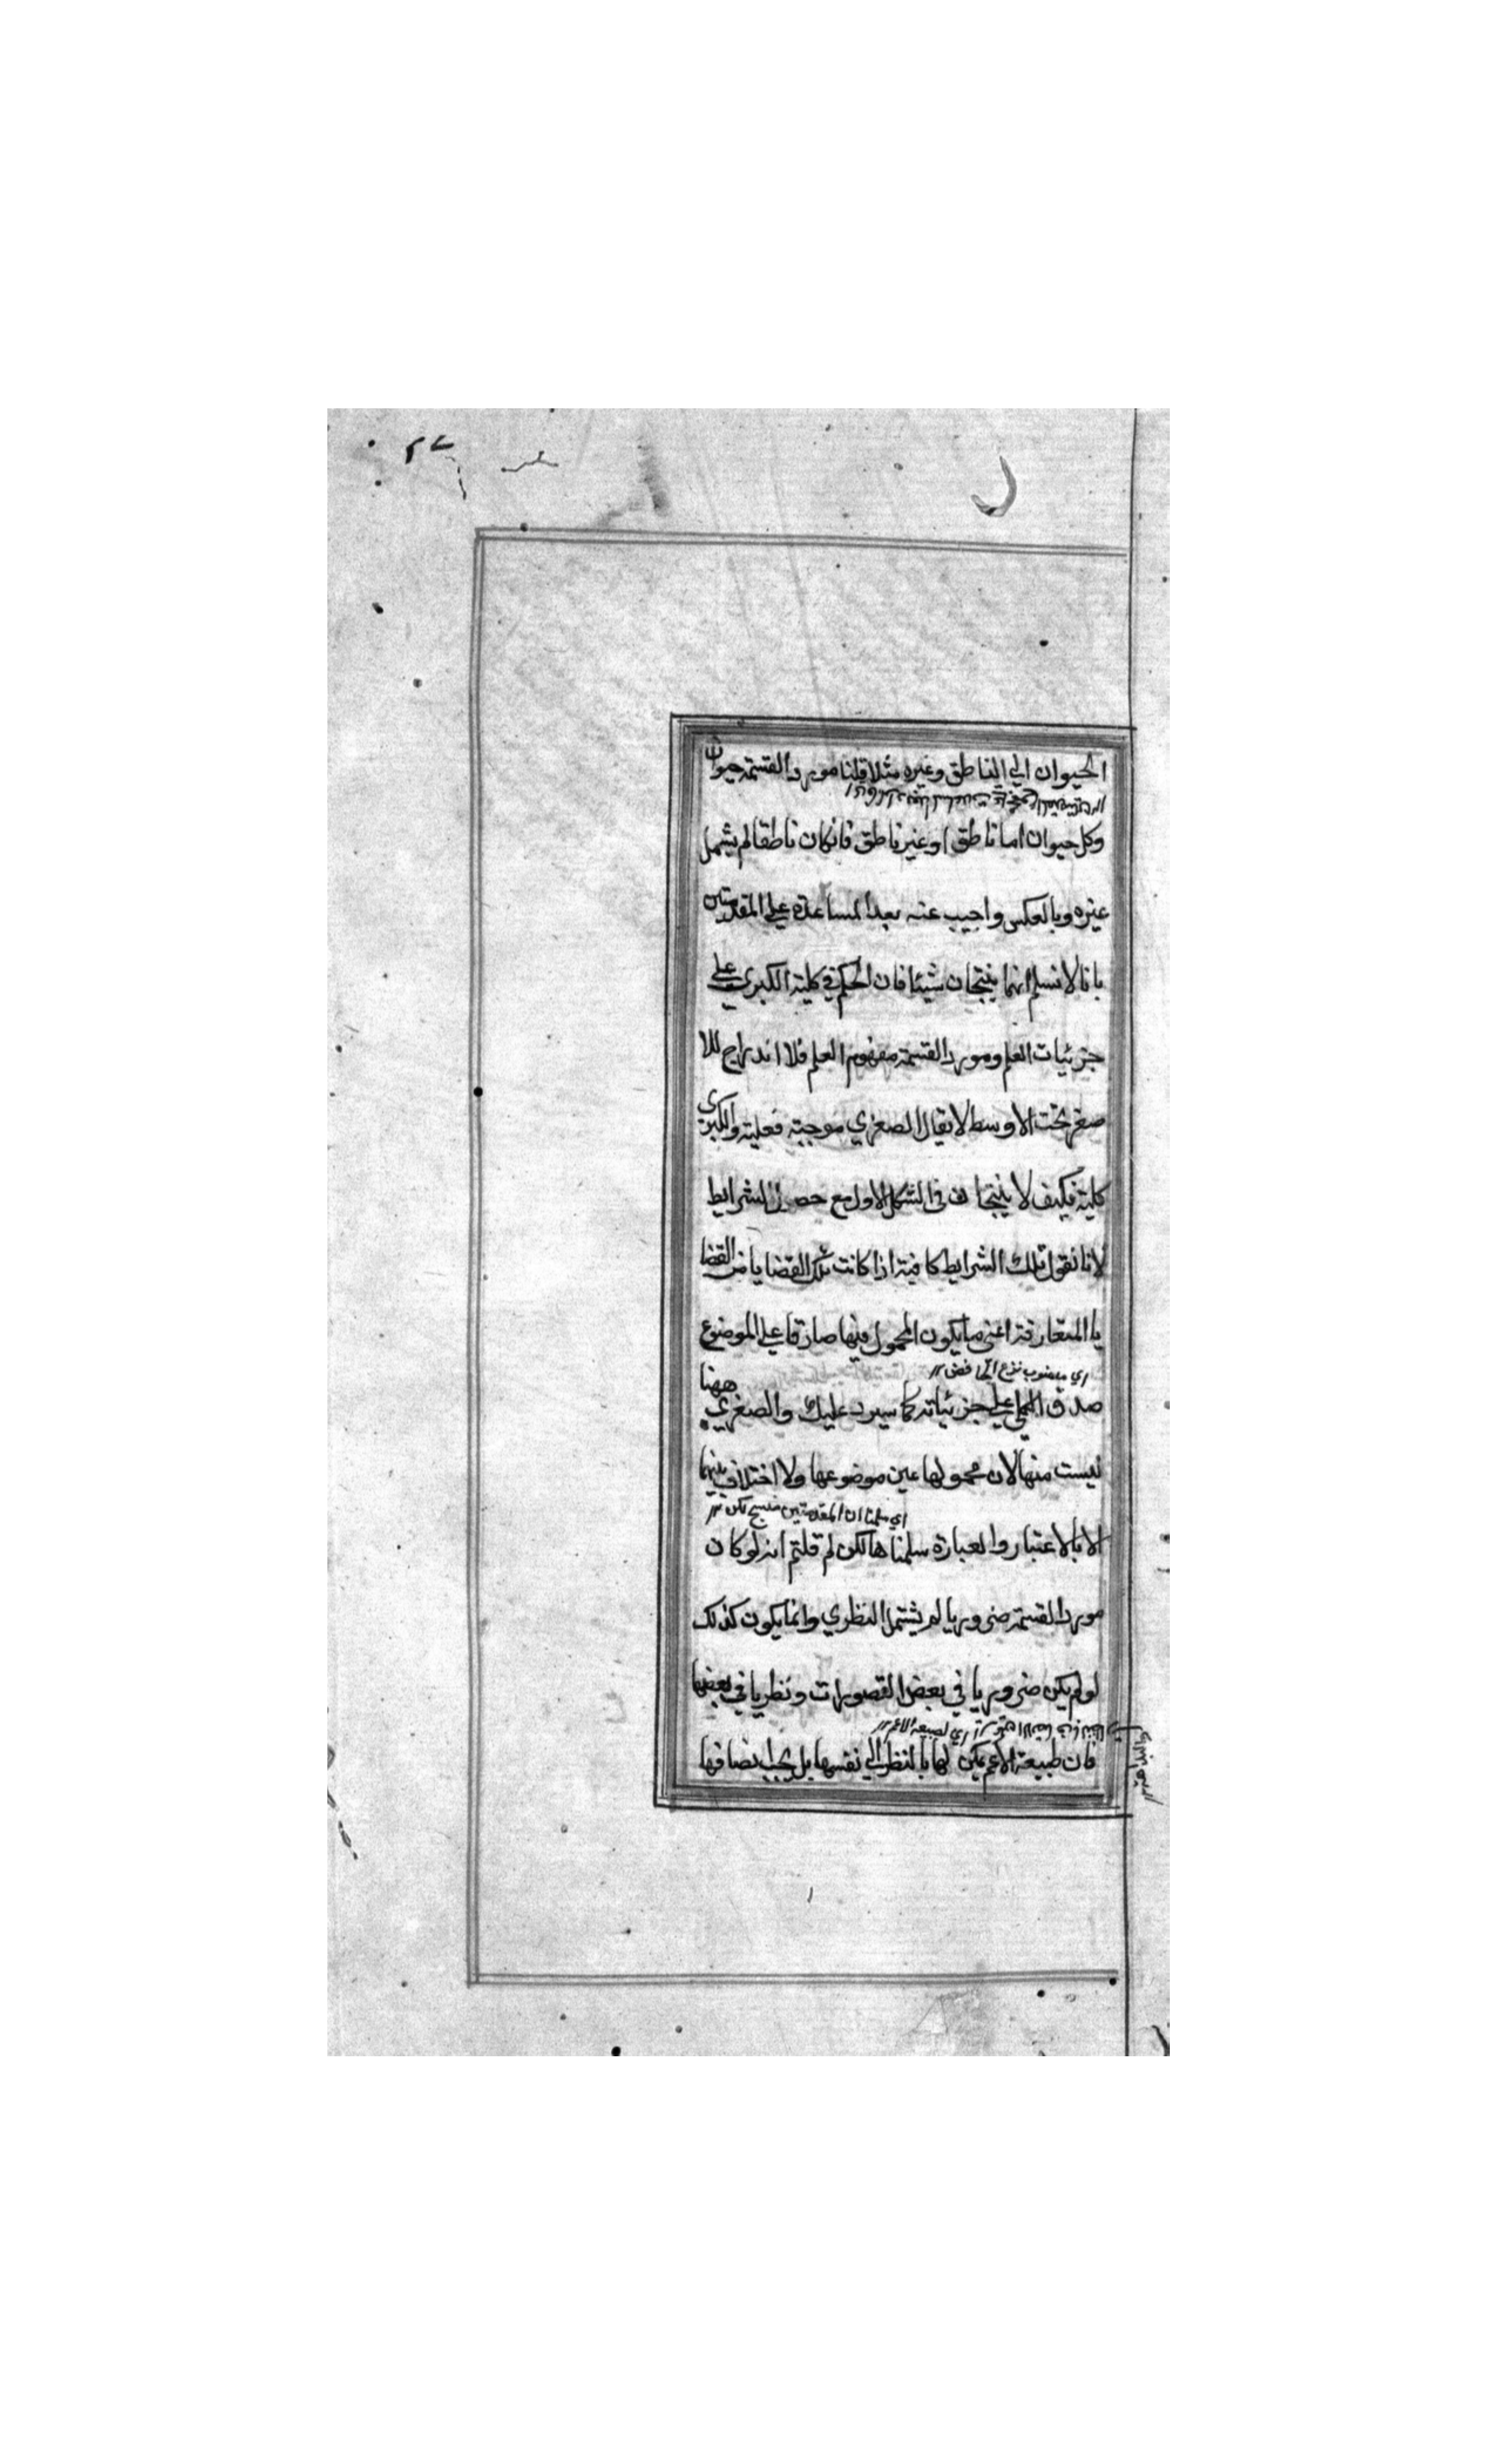 ٢٧
الحيوان الي الناطق وغيره مثلا قلنا مورد القسمة حيوان
وكل حيوان اما ناطق او غير ناطق فانكان ناطقا لم يشمل
غيره وبالعكس واجيب عنه بعد المساعدة علي المقدمتين
بانا لا نسلم انهما ينتجان شيئا فان الحكم في كلية الكبري علي
جزئيات العلم ومورد القسمة مفهوم العلم فلا اندراج للا
صغر تحت الاوسط لا يقال الصغري موجبة فعلية والكبرى
كلية فكيف لا ينتجان في الشكل الاول مع حصول الشرايط
لانا نقول تلك الشرايط كافية اذا كانت تلك القضايا من القضا
يا المتعارفة اعني ما يكون المحمول فيها صادقا علي الموضوع
اي منصوب بنزع الخافض
صدق الكلي علي جزئياته كما سيرد عليك والصغري ههنا
ليست منها لان محمولها عين موضوعها ولا اختلاف بينهما
اي سلمنا ان المقدمتين منتج لكن
الا بالاعتبار والعبارة سلمناها لكن لم قلتم انه لو كان
مورد القسمة ضروريا لم يشتمل النظري وانما يكون كذلك
لو لم يكن ضروريا في بعض التصورات ونظريا في بعضها
اي لطبيعة الاعم
فان طبيعة الاعم يمكن لها بالنظر الي نفسها بل يجب اتصافها